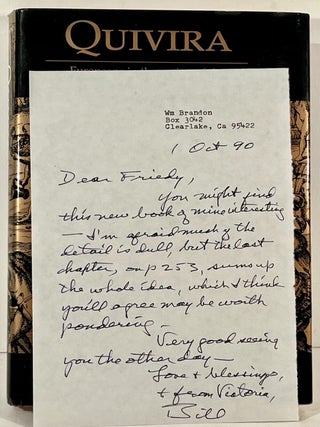 QUIVIRA
Europeans in the
Wm Brandon
Box 3042
Clearlake, Ca 95422
1 Oct 90
Dear Friedy,
You might find
this new book of mine interesting
— I'm afraid much of the
detail is dull, but the last
chapter, on p 253, sums up
the whole idea, which I think
you'll agree may be worth
pondering —
Very good seeing
you the other day —
Love + blessings,
+ from Victoria,
Bill